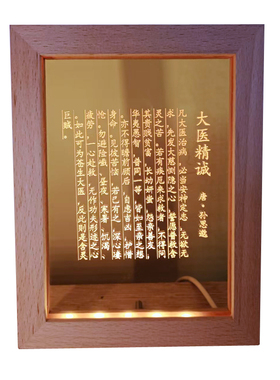 大医精诚
唐·孙思邈
凡大医治病，必当安神定志，无欲无
求，先发大慈恻隐之心，誓愿普救含
灵之苦。若有疾厄来求救者，不得问
其贵贱贫富，长幼妍蚩，怨亲善友，
华夷愚智，普同一等，皆如至亲之想，
亦不得瞻前顾后，自虑吉凶，护惜
身命。见彼苦恼，若己有之，深心凄
怆，勿避险巇、昼夜、寒暑、饥渴、
疲劳，一心赴救，无作功夫形迹之心。
如此可为苍生大医，反此则是含灵
巨贼。